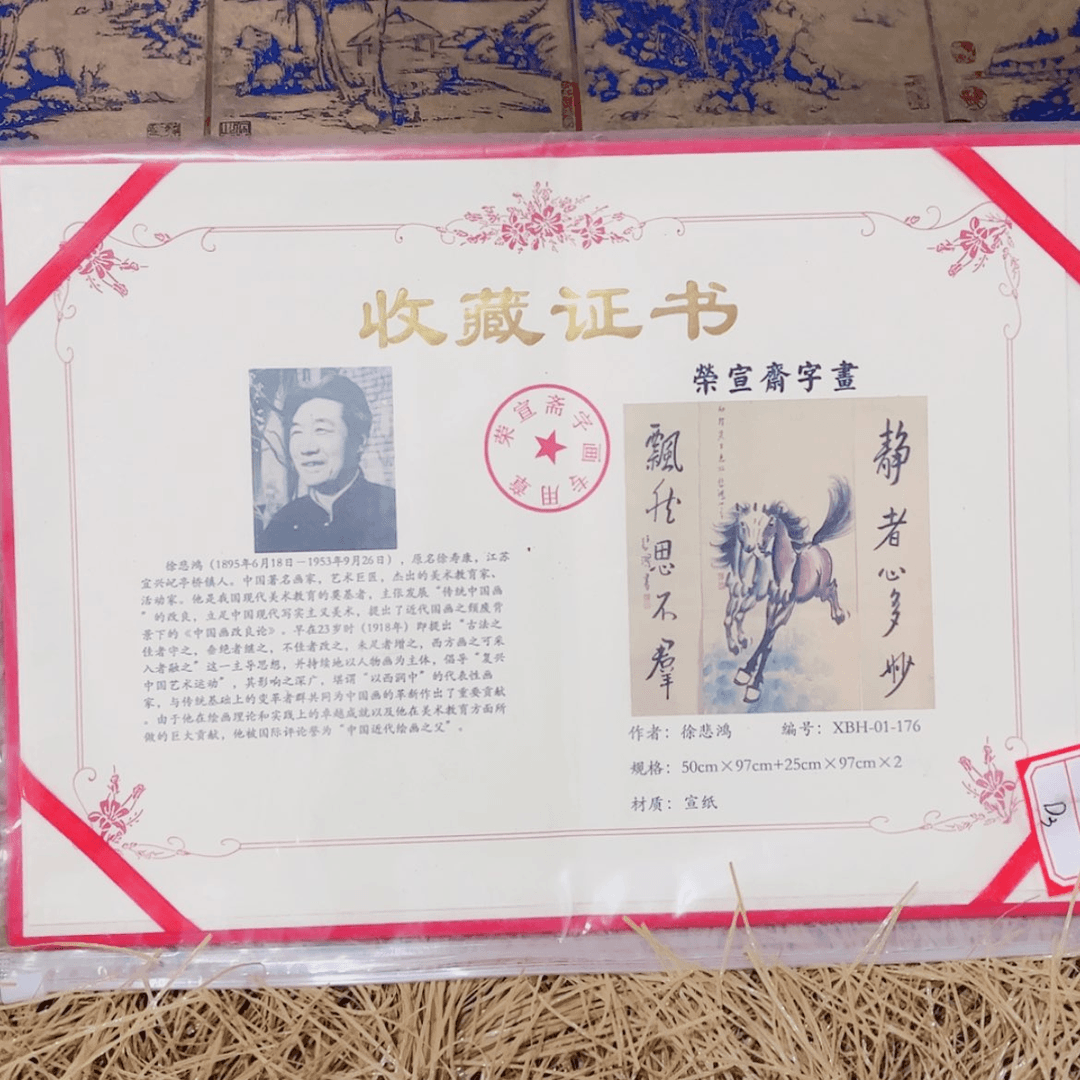 收藏证书
荣宣斋字画
专用章
榮宣齋字畫
静者心多妙
飄然思不羣
徐悲鸿(1895年6月18日—1953年9月26日),原名徐寿康,江苏
宜兴屺亭桥镇人。中国著名画家,艺术巨匠,杰出的美术教育家、
活动家。他是我国现代美术教育的奠基者,主张发展“传统中国画
”的改良,立足中国现代写实主义美术,提出了近代国画之颓废背
景下的《中国画改良论》。早在23岁时(1918年)即提出“古法之
佳者守之,垂绝者继之,不佳者改之,未足者增之,西方画之可采
入者融之”这一主导思想,并持续地以人物画为主体,倡导“复兴
中国艺术运动”,其影响之深广,堪谓“以西润中”的代表性画
家,与传统基础上的变革者群共同为中国画的革新作出了重要贡献
。由于他在绘画理论和实践上的卓越成就以及他在美术教育方面所
做的巨大贡献,他被国际评论誉为“中国近代绘画之父”。
作者:徐悲鸿 编号:XBH-01-176
规格:50cm×97cm+25cm×97cm×2
材质:宣纸
D3